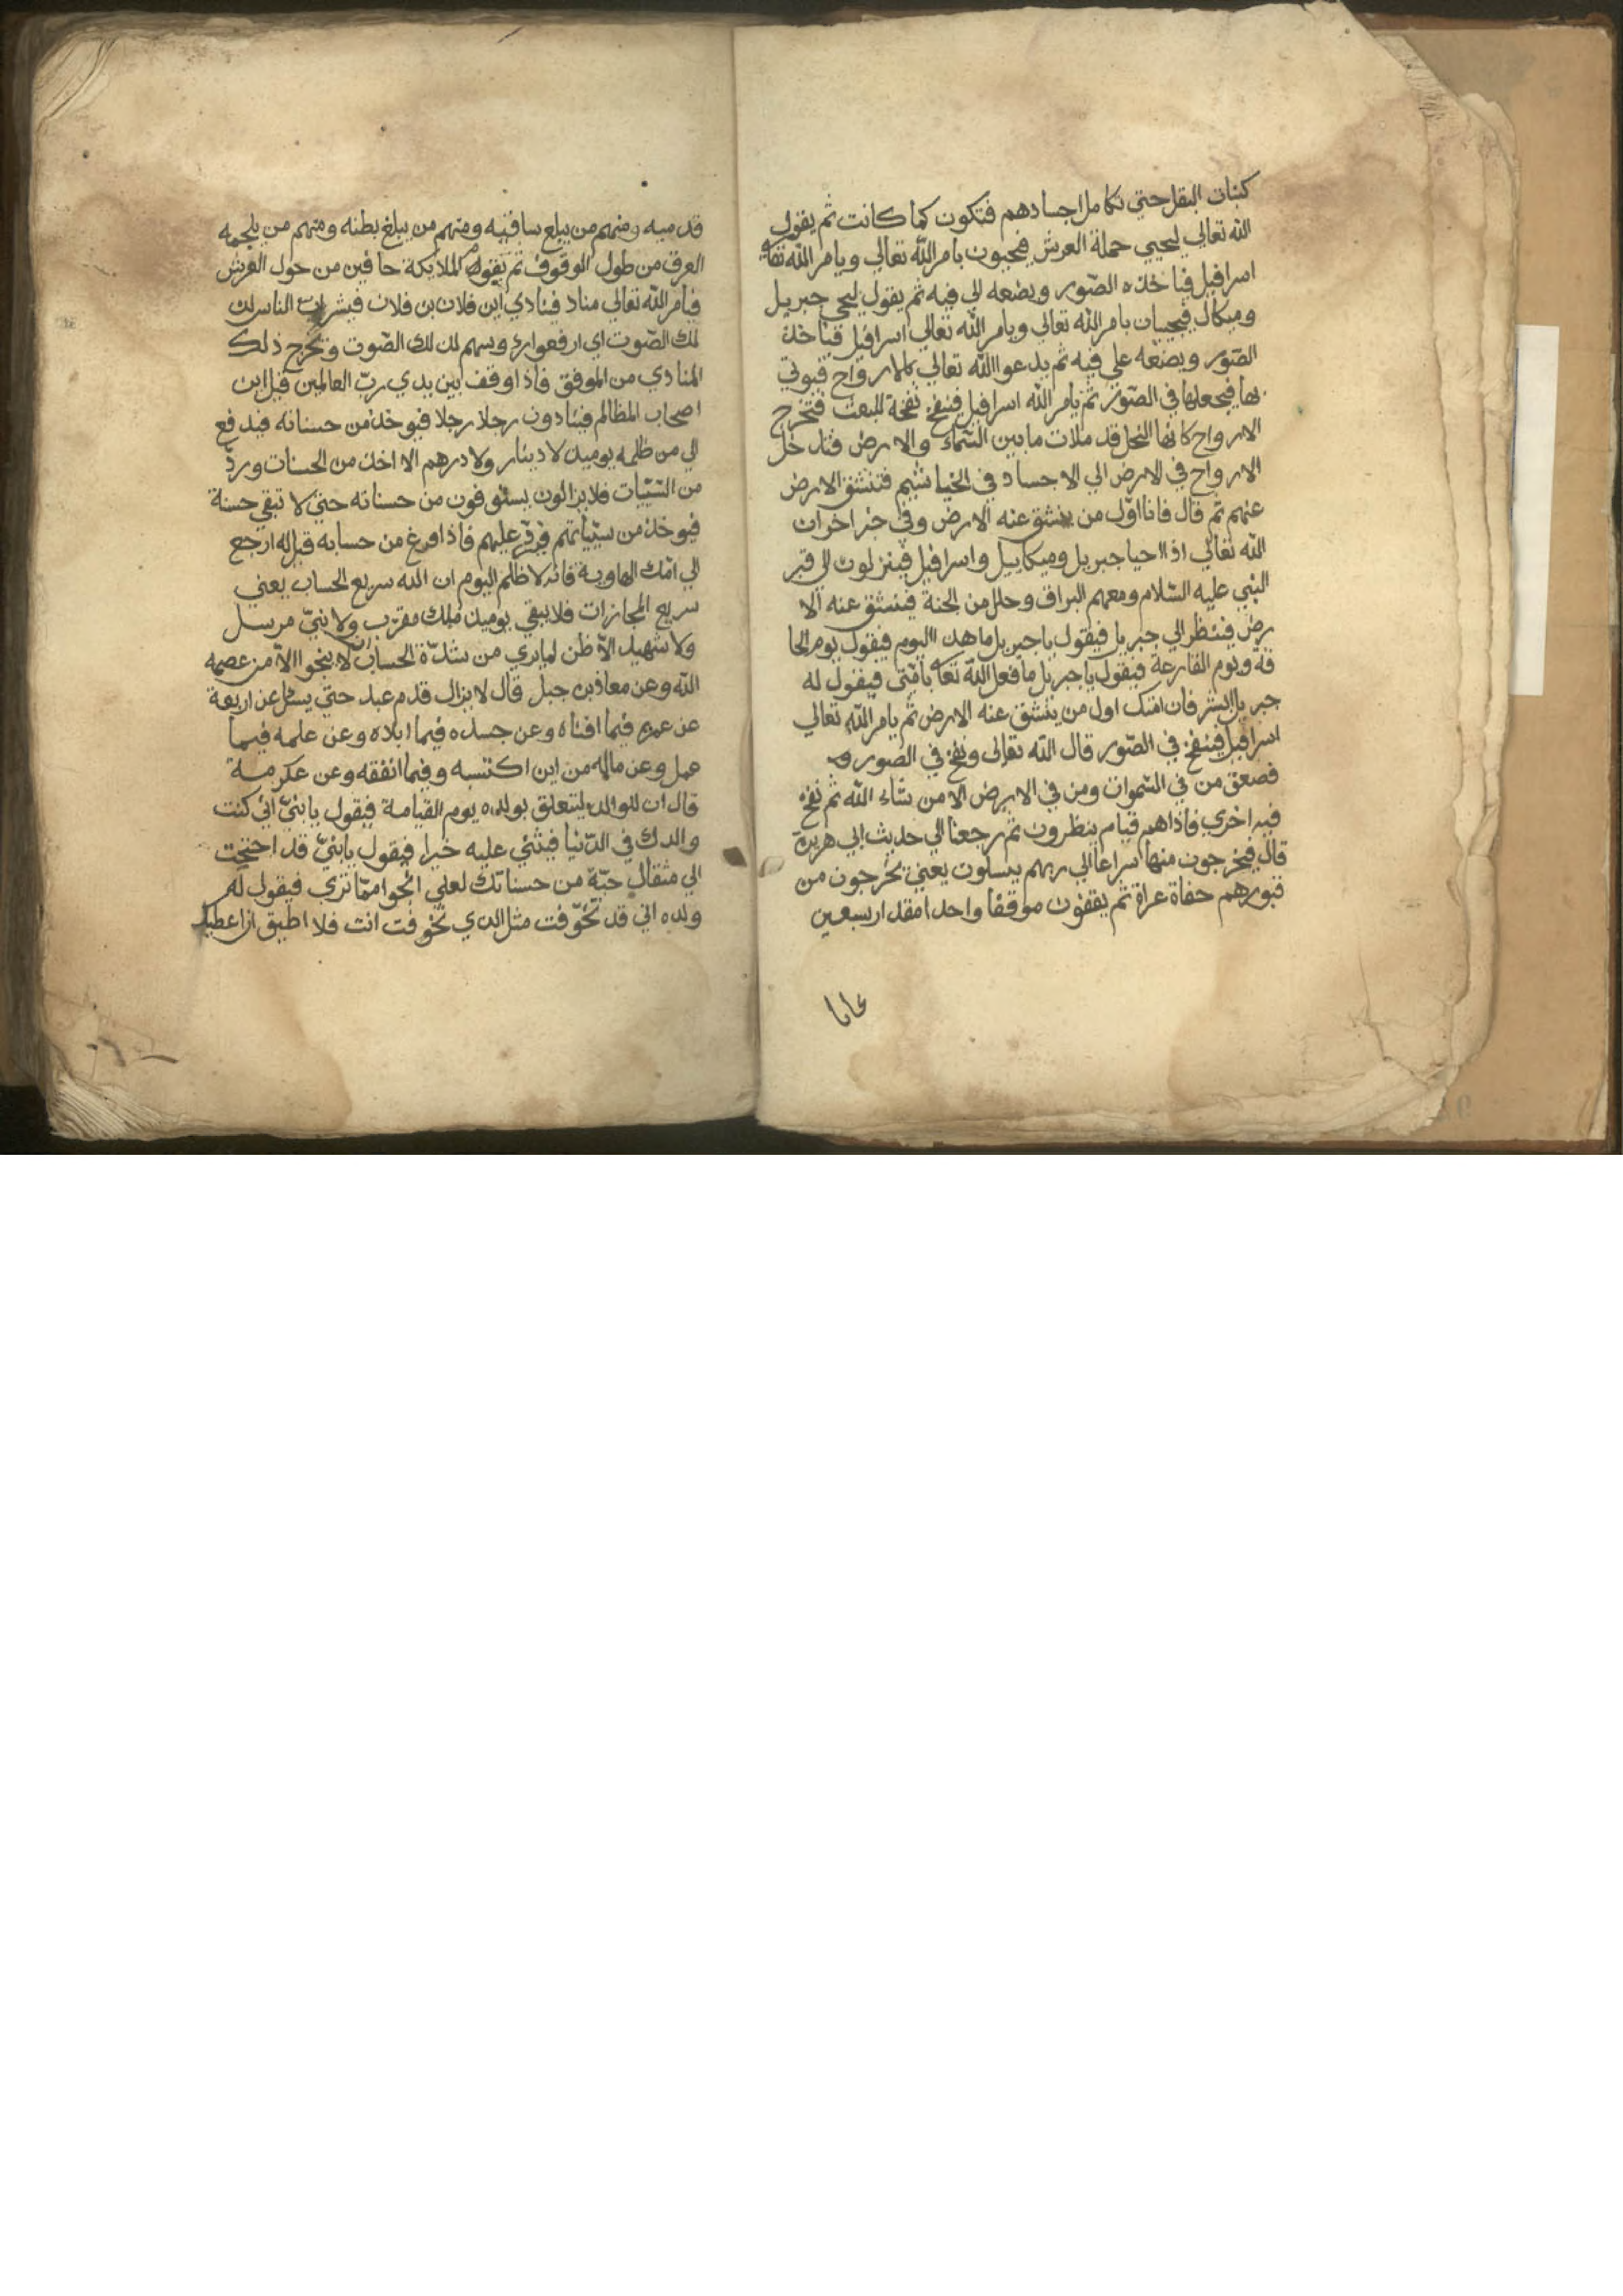 كنبات البقل حتي تكامل اجسادهم فتكون كما كانت ثم يقول
الله تعالي ليحيي حملة العرش فيحيون بامر الله تعالي ويامر الله تعا
اسرافيل فياخذه الصّور ويضعه الي فيه ثم يقول ليحي جبريل
وميكال فيحييان بامر الله تعالي ويامر الله تعالي اسرافيل فياخذ
الصّور ويضعه علي فيه ثم يدعوا الله تعالي بالارواح فيوتي
بها فيجعلها في الصّور ثم يامر الله اسرافيل فينفخ نفخة للبعث فتخرج
الارواح كانها النحل قد ملات ما بين السّماء والارض فتدخل
الارواح في الارض الي الاجساد في الخياشيم فتنشق الارض
عنهم ثم قال فانا اوّل من ينشق عنه الارض وفي خبر اخر ان
الله تعالي اذا احيا جبريل وميكاييل واسرافيل فينزلون الي قبر
النبي عليه السّلام ومعهم البراق وحلل من الجنة فينشق عنه الا
رض فينظر الي جبريل فيقول يا جبريل ما هذا اليوم فيقول يوم الحا
قة ويوم القارعة فيقول يا جبريل ما فعل الله تعا بامّتي فيقول له
جبريل ابشر فان امتك اول من ينشق عنه الارض ثم يامر الله تعالي
اسرافيل فينفخ في الصّور قال الله تعالى ونفخ في الصور
فصعق من في السّموات ومن في الارض الا من شاء الله ثم نفخ
فيه اخري فاذاهم قيام ينظرون ثم رجعنا الي حديث ابي هريرة
قال فيخرجون منها سراعا الي ربهم ينسلون يعني يخرجون من
قبورهم حفاة عراة ثم يقفون موقفا واحدا مقدار سبعين
عاما
قدميه ومنهم من يبلغ ساقيه ومنهم من يبلغ بطنه ومنهم من يلجمه
العرق من طول الوقوف ثم يقول الملايكة حافين من حول العرش
فيامر الله تعالي مناد فينادي اين فلان بن فلان فيشرئب الناس لذ
لك الصّوت اي ارفعوا رؤسهم لذلك الصّوت ويخرج ذلك
المنادي من الموقف فاذا وقف بين يدي ربّ العالمين قيل اين
اصحاب المظالم فينادون رجلا رجلا فيوخذ من حسناته فيدفع
الي من ظلمه يوميذ لا دينار ولا درهم الا اخذ من الحسنات وردّ
من السّيّيات فلا يزالون يستوفون من حسناته حتي لا تبقي حسنة
فيوخذ من سيّياتهم فيردّ عليهم فاذا فرغ من حسابه قيل له ارجع
الي امّك الهاوية فانه لا ظلم اليوم ان الله سريع الحساب يعني
سريع المجازات فلا يبقي يوميذ ملك مقرّب ولا نبيّ مرسل
ولا شهيد الاّ ظن لما يري من شدّة الحساب انه لا ينجوا الا من عصمه
الله وعن معاذ بن جبل قال لا يزال قدم عبد حتي يسئل عن اربعة
عن عمره فيما افناه وعن جسده فيما ابلاه وعن علمه فيما
عمل وعن ماله من اين اكتسبه وفيما انفقه وعن عكرمة
قال ان للوالد ليتعلق بولده يوم القيامة فيقول يا بنيّ اني كنت
والدك في الدّنيا فيثني عليه خيرا فيقول يا بنيّ قد احتجت
الي مثقال حبّة من حسناتك لعلي انجوا ممّا تري فيقول له
ولده اني قد تخوّفت مثل الذي تخوفت انت فلا اطيق ان اعطيك